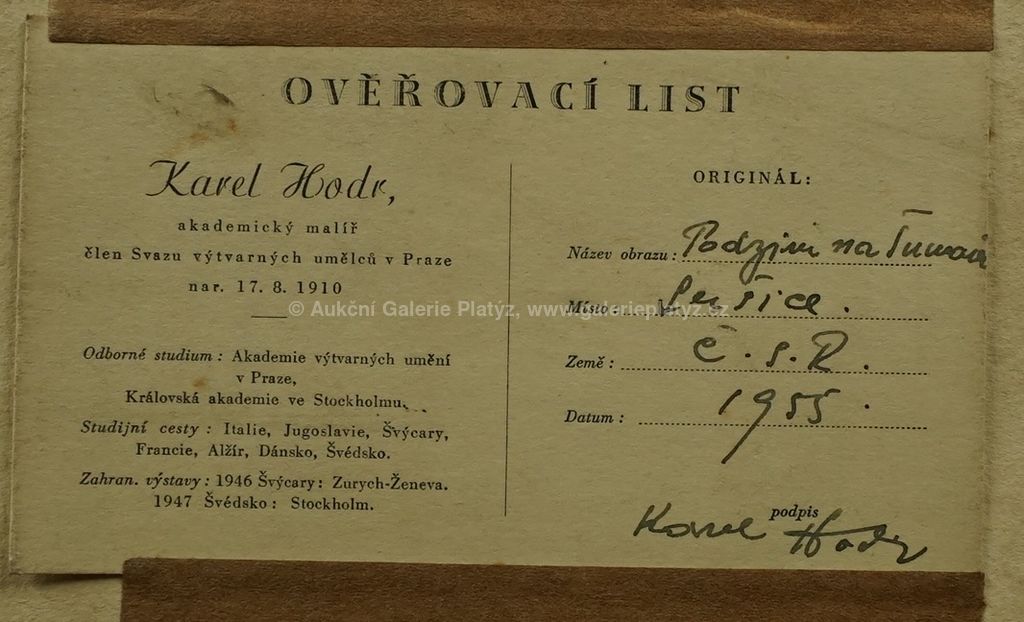 OVĚŘOVACÍ LIST
Karel Hodr,
akademický malíř
člen Svazu výtvarných umělců v Praze
nar. 17. 8. 1910
Odborné studium : Akademie výtvarných umění
v Praze,
Královská akademie ve Stockholmu.
Studijní cesty : Italie, Jugoslavie, Švýcary,
Francie, Alžír, Dánsko, Švédsko.
Zahran. výstavy : 1946 Švýcary : Zurych-Ženeva.
1947 Švédsko : Stockholm.
ORIGINÁL :
Název obrazu : Podzim na
Místo :
Země : Č. S. R.
Datum : 1955.
podpis
Karel Hodr
© Aukční Galerie Platýz, www.galerieplatyz.cz